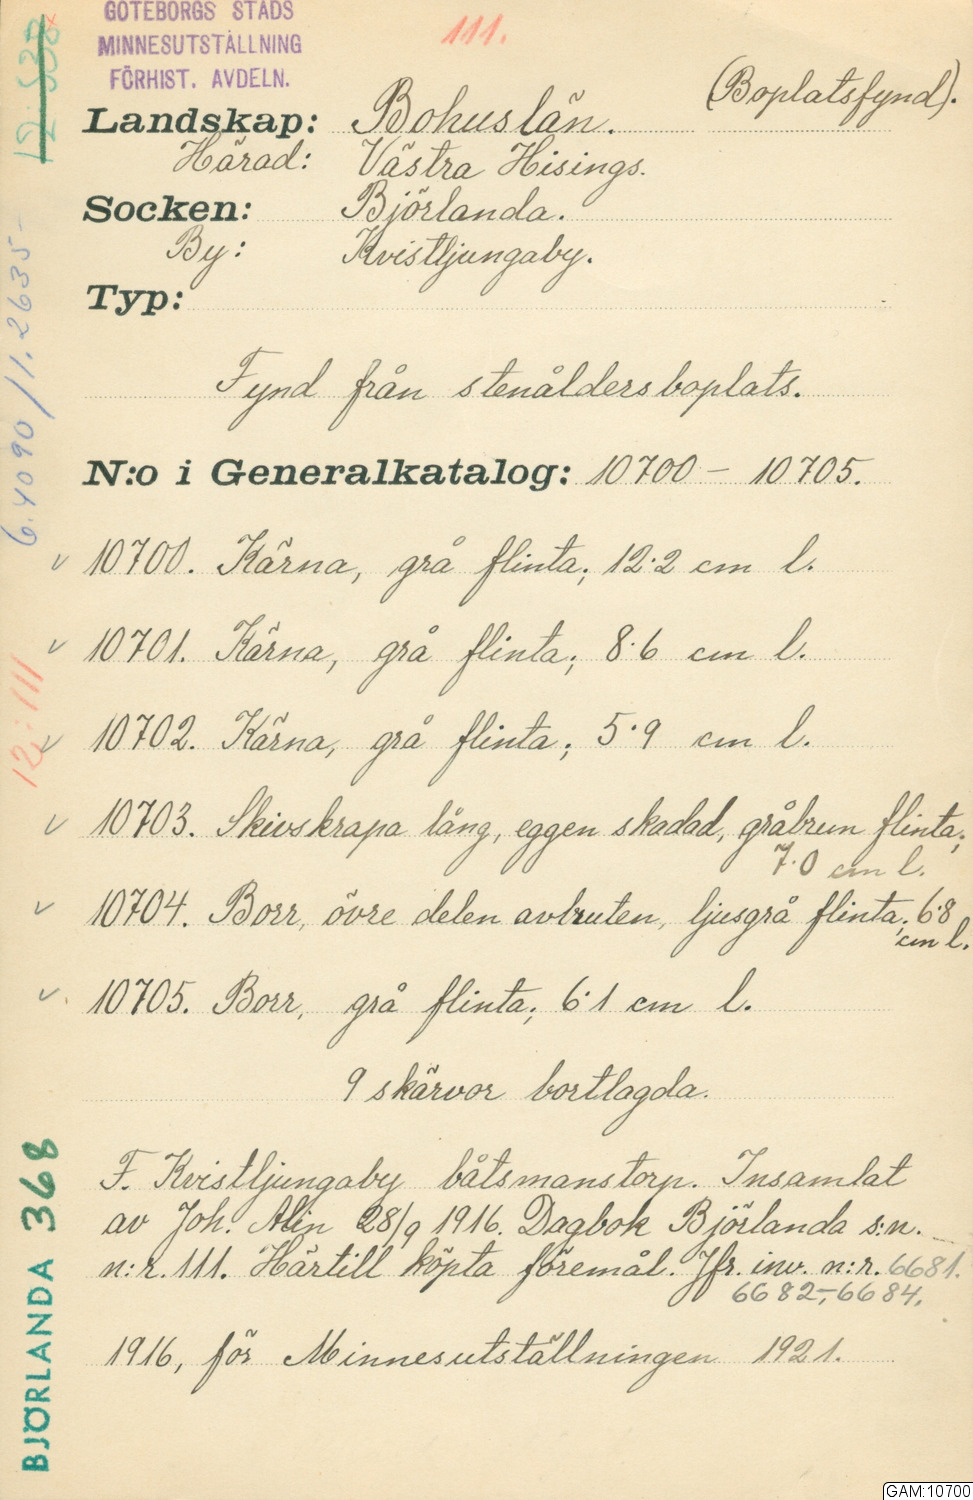 GÖTEBORGS STADS
MINNESUTSTÄLLNING
FÖRHIST. AVDELN.
111.
(Boplatsfynd).
Landskap: Bohuslän.
Härad: Västra Hisings.
Socken: Björlanda.
By: Kvistljungaby.
Typ:
Fynd från stenåldersboplats.
N:o i Generalkatalog: 10700 – 10705.
v 10700. Kärna, grå flinta; 12·2 cm l.
v 10701. Kärna, grå flinta; 8·6 cm l.
v 10702. Kärna, grå flinta; 5·9 cm l.
v 10703. Skivskrapa lång, eggen skadad, gråbrun flinta;
7·0 cm l.
v 10704. Borr, övre delen avbruten, ljusgrå flinta; 6·8
cm l.
v. 10705. Borr, grå flinta; 6·1 cm l.
9 skärvor bortlagda.
F. Kvistljungaby båtsmanstorp. Insamlat
av Joh. Alin 28/9 1916. Dagbok Björlanda s:n.
n:r. 111. Härtill köpta föremål. Jfr. inv. n:r. 6681.
6682,-6684.
1916, för Minnesutställningen 1921.
6.4090/1.2635-
12:111
BJÖRLANDA 368
GAM:10700